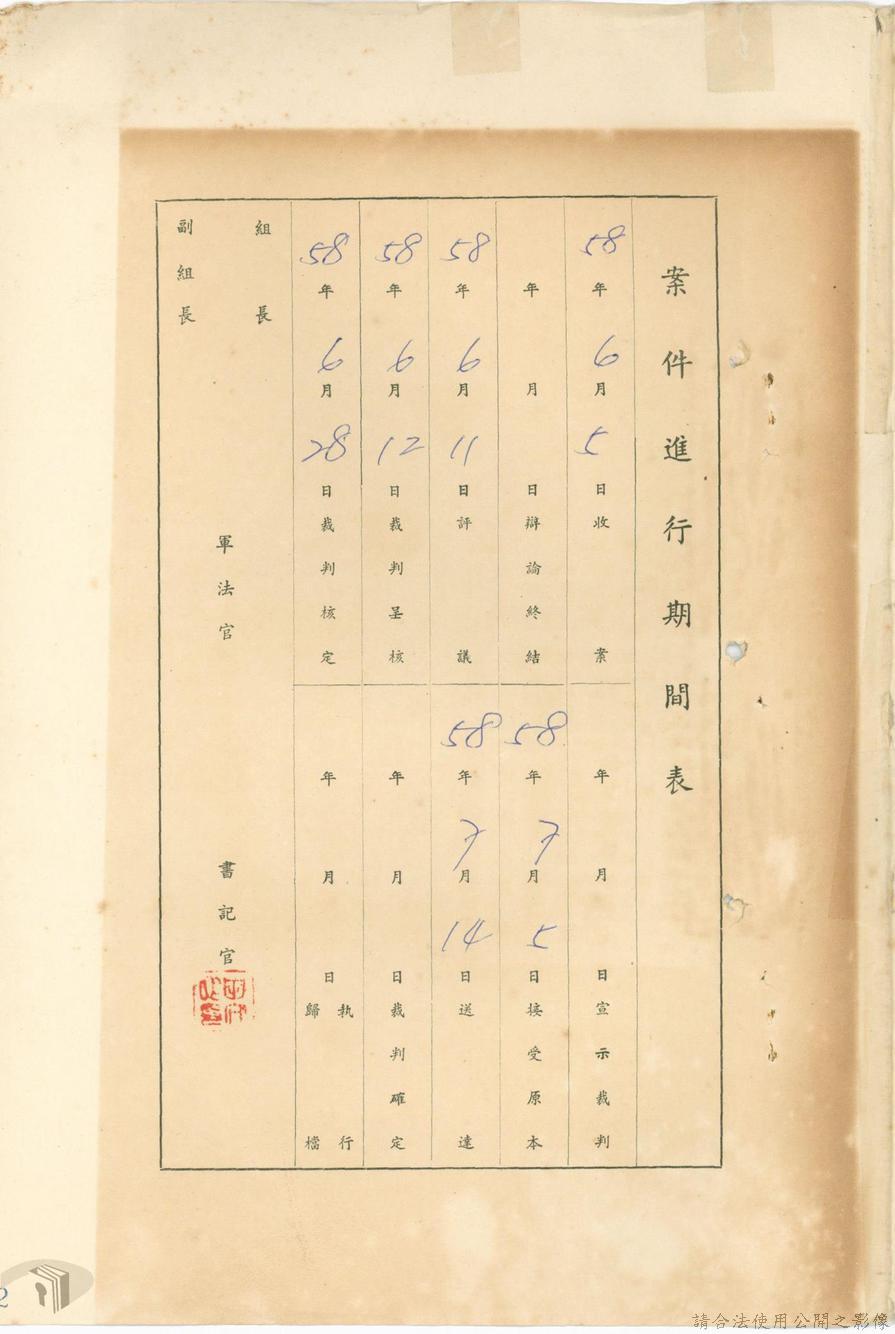 案件進行期間表
58年6月5日收案
年月日宣示裁判
年月日辯論終結
58年7月5日接受原本
58年6月11日評議
58年7月14日送達
58年6月12日裁判呈核
年月日裁判確定
58年6月28日裁判核定
年月日執行歸檔
組長
副組長
軍法官
書記官
2
請合法使用公開之影像